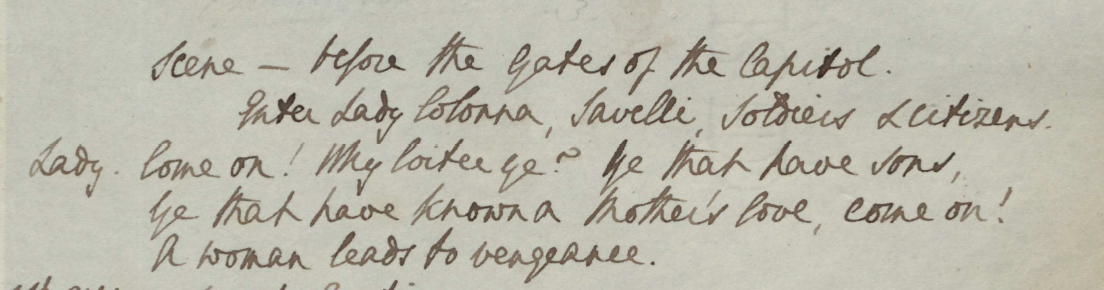 Scene — before the Gates of the Capitol.
Enter Lady Colonna, Savelli, Soldiers & citizens.
Lady. Come on! Why loiter ye? Ye that have sons,
Ye that have known a Mother's love, come on!
A woman leads to vengeance.